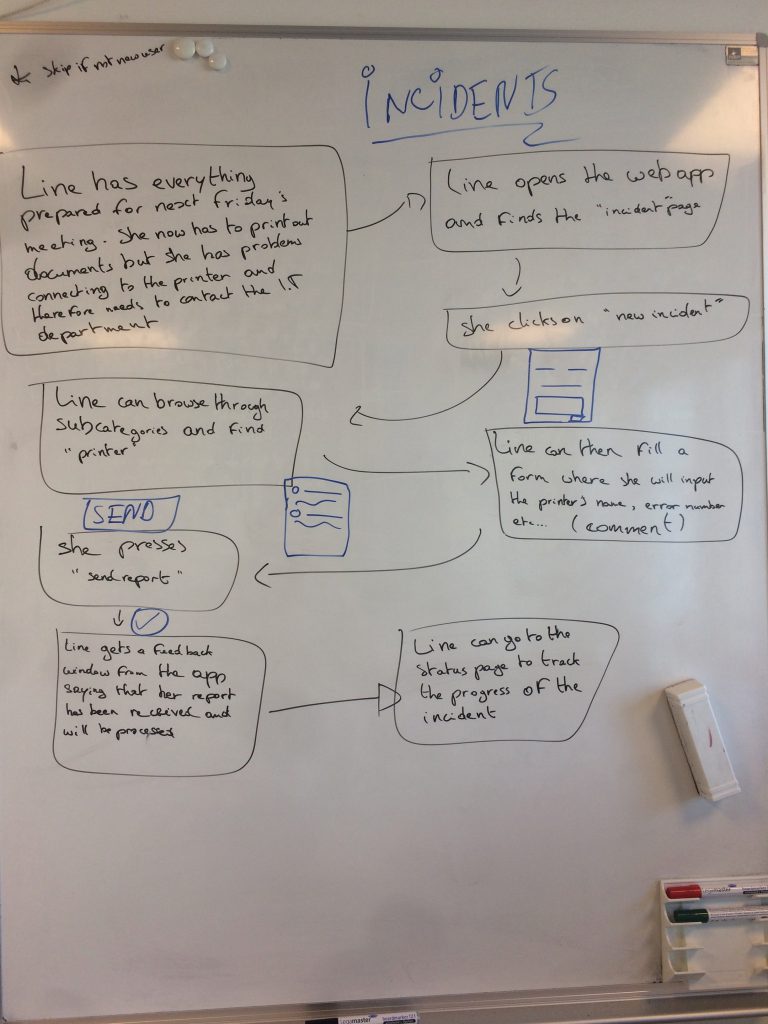 * Skip if not new user
INCIDENTS
Line has everything
prepared for next Friday's
meeting. She now has to print out
documents but she has problems
connecting to the printer and
therefore needs to contact the I.T
department
Line opens the web app
and finds the "incident" page
She clicks on "new incident"
Line can browse through
subcategories and find
"printer"
Line can then fill a
form where she will input
the printer's name, error number
etc... (comment)
SEND
She presses
"send report"
Line gets a feedback
window from the app
saying that her report
has been received and
will be processed
Line can go to the
status page to track
the progress of the
incident